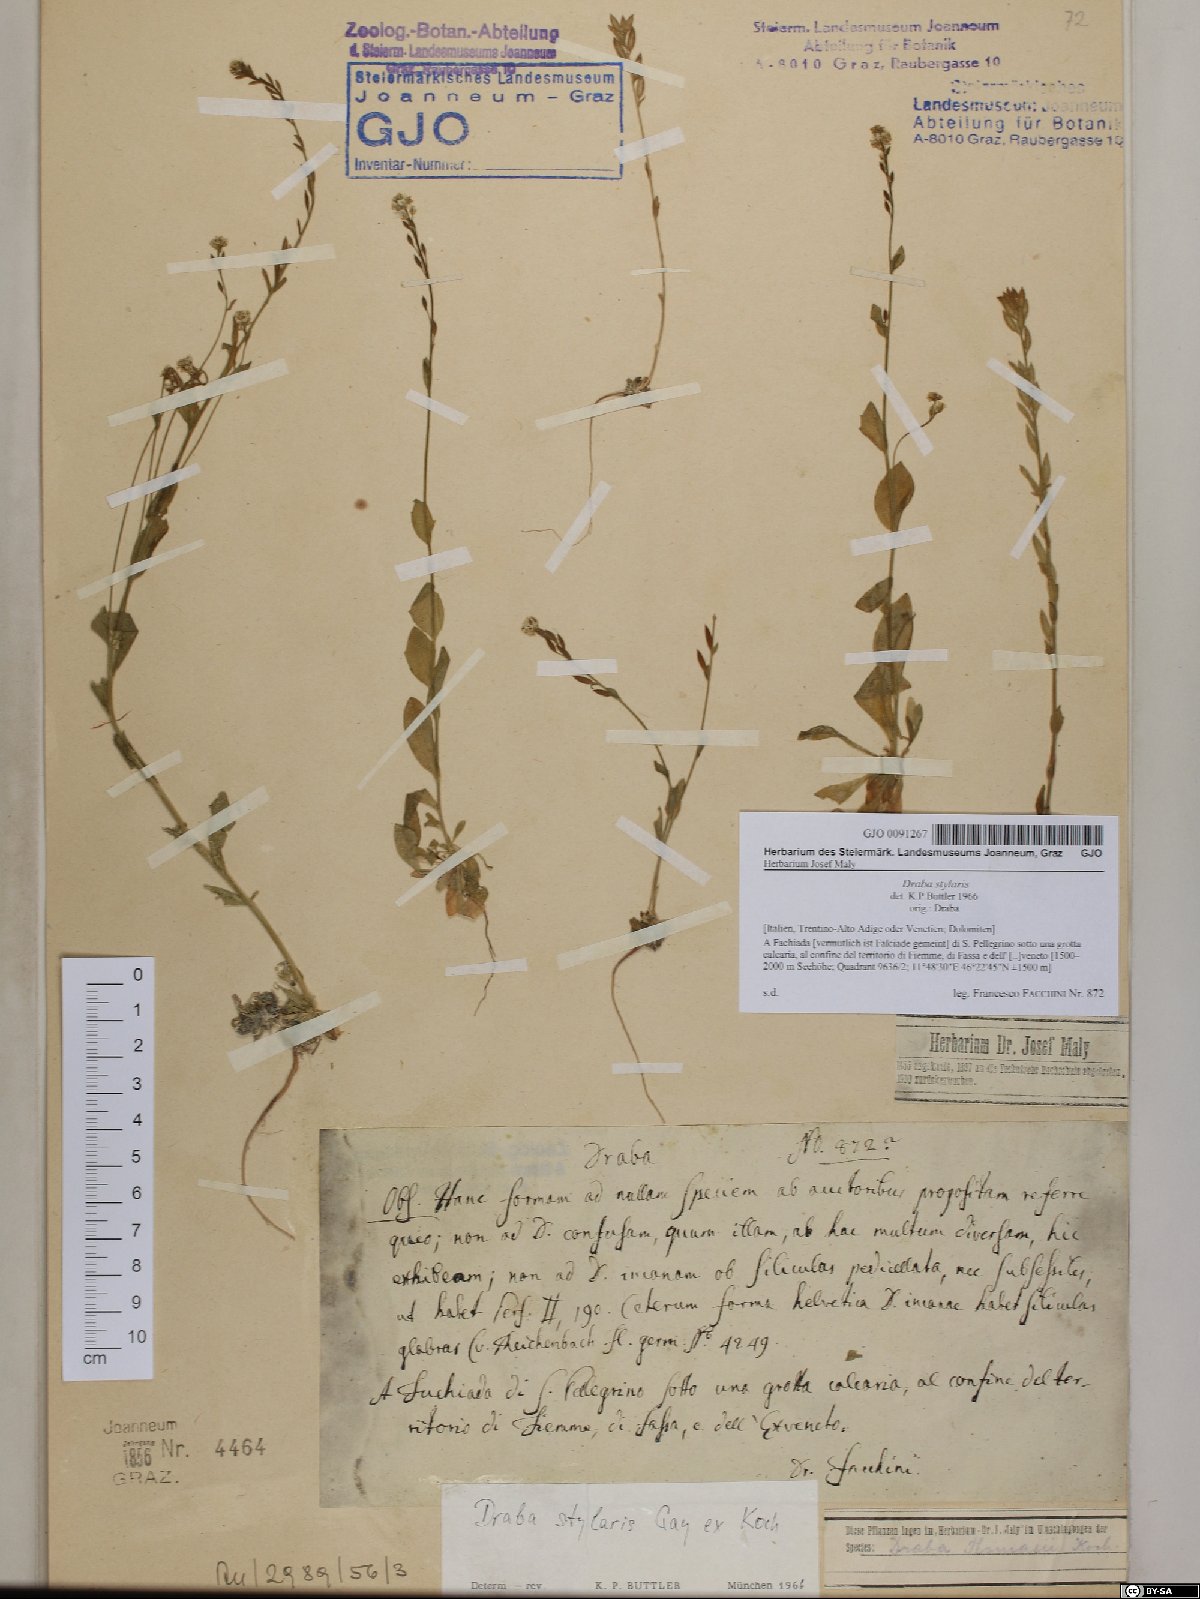 72
Zoolog.-Botan.-Abteilung
d. Steierm. Landesmuseums Joanneum
Graz, Raubergasse 10
Steiermärkisches Landesmuseum
Joanneum – Graz
GJO
Inventar-Nummer:
Steierm. Landesmuseum Joanneum
Abteilung für Botanik
A-8010 Graz, Raubergasse 10
Steiermärkisches
Landesmuseum Joanneum
Abteilung für Botanik
A-8010 Graz, Raubergasse 10
GJO 0091267
Herbarium des Steiermärk. Landesmuseums Joanneum, Graz GJO
Herbarium Josef Maly
Draba stylaris
det. K.P.Buttler 1966
orig.: Draba
[Italien, Trentino-Alto Adige oder Venetien; Dolomiten]
A Fachiada [vermutlich ist Falciade gemeint] di S. Pellegrino sotto una grotta
calcaria, al confine del territorio di Fiemme, di Fassa e dell' [...]veneto [1500–
2000 m Seehöhe; Quadrant 9636/2; 11°48'30"E 46°22'45"N ±1500 m]
s.d. leg. Francesco FACCHINI Nr. 872
Herbarium Dr. Josef Maly
0
1
2
3
4
5
6
7
8
9
10
cm
Draba No. 872
Obs. Hanc formam ad nullam speciem ab auctoribus propositam referre
queo; non ad D. confusam, quum illam, ab hac multum diversam, hic
exhibeam; non ad D. incanam ob siliculas pedicellata, nec subsessiles,
ut habet Pers. II, 190. Ceterum forma helvetica D. incanae habet siliculas
glabras (v. Reichenbach fl. germ. No. 4249.
A Fuchiada di S. Pellegrino sotto una grotta calcaria, al confine del ter-
ritorio di Fiemme, di Fassa, e dell' Exveneto.
Dr. Facchini.
Joanneum
Jahrgang
1856 Nr. 4464
GRAZ.
Draba stylaris Gay ex Koch
Determ – rev. K. P. BUTTLER München 1966
Diese Pflanzen lagen im Herbarium Dr. J. Maly im Umschlagbogen der
Species: Draba Thomasii Koch.
2989/56/3
CC BY-SA